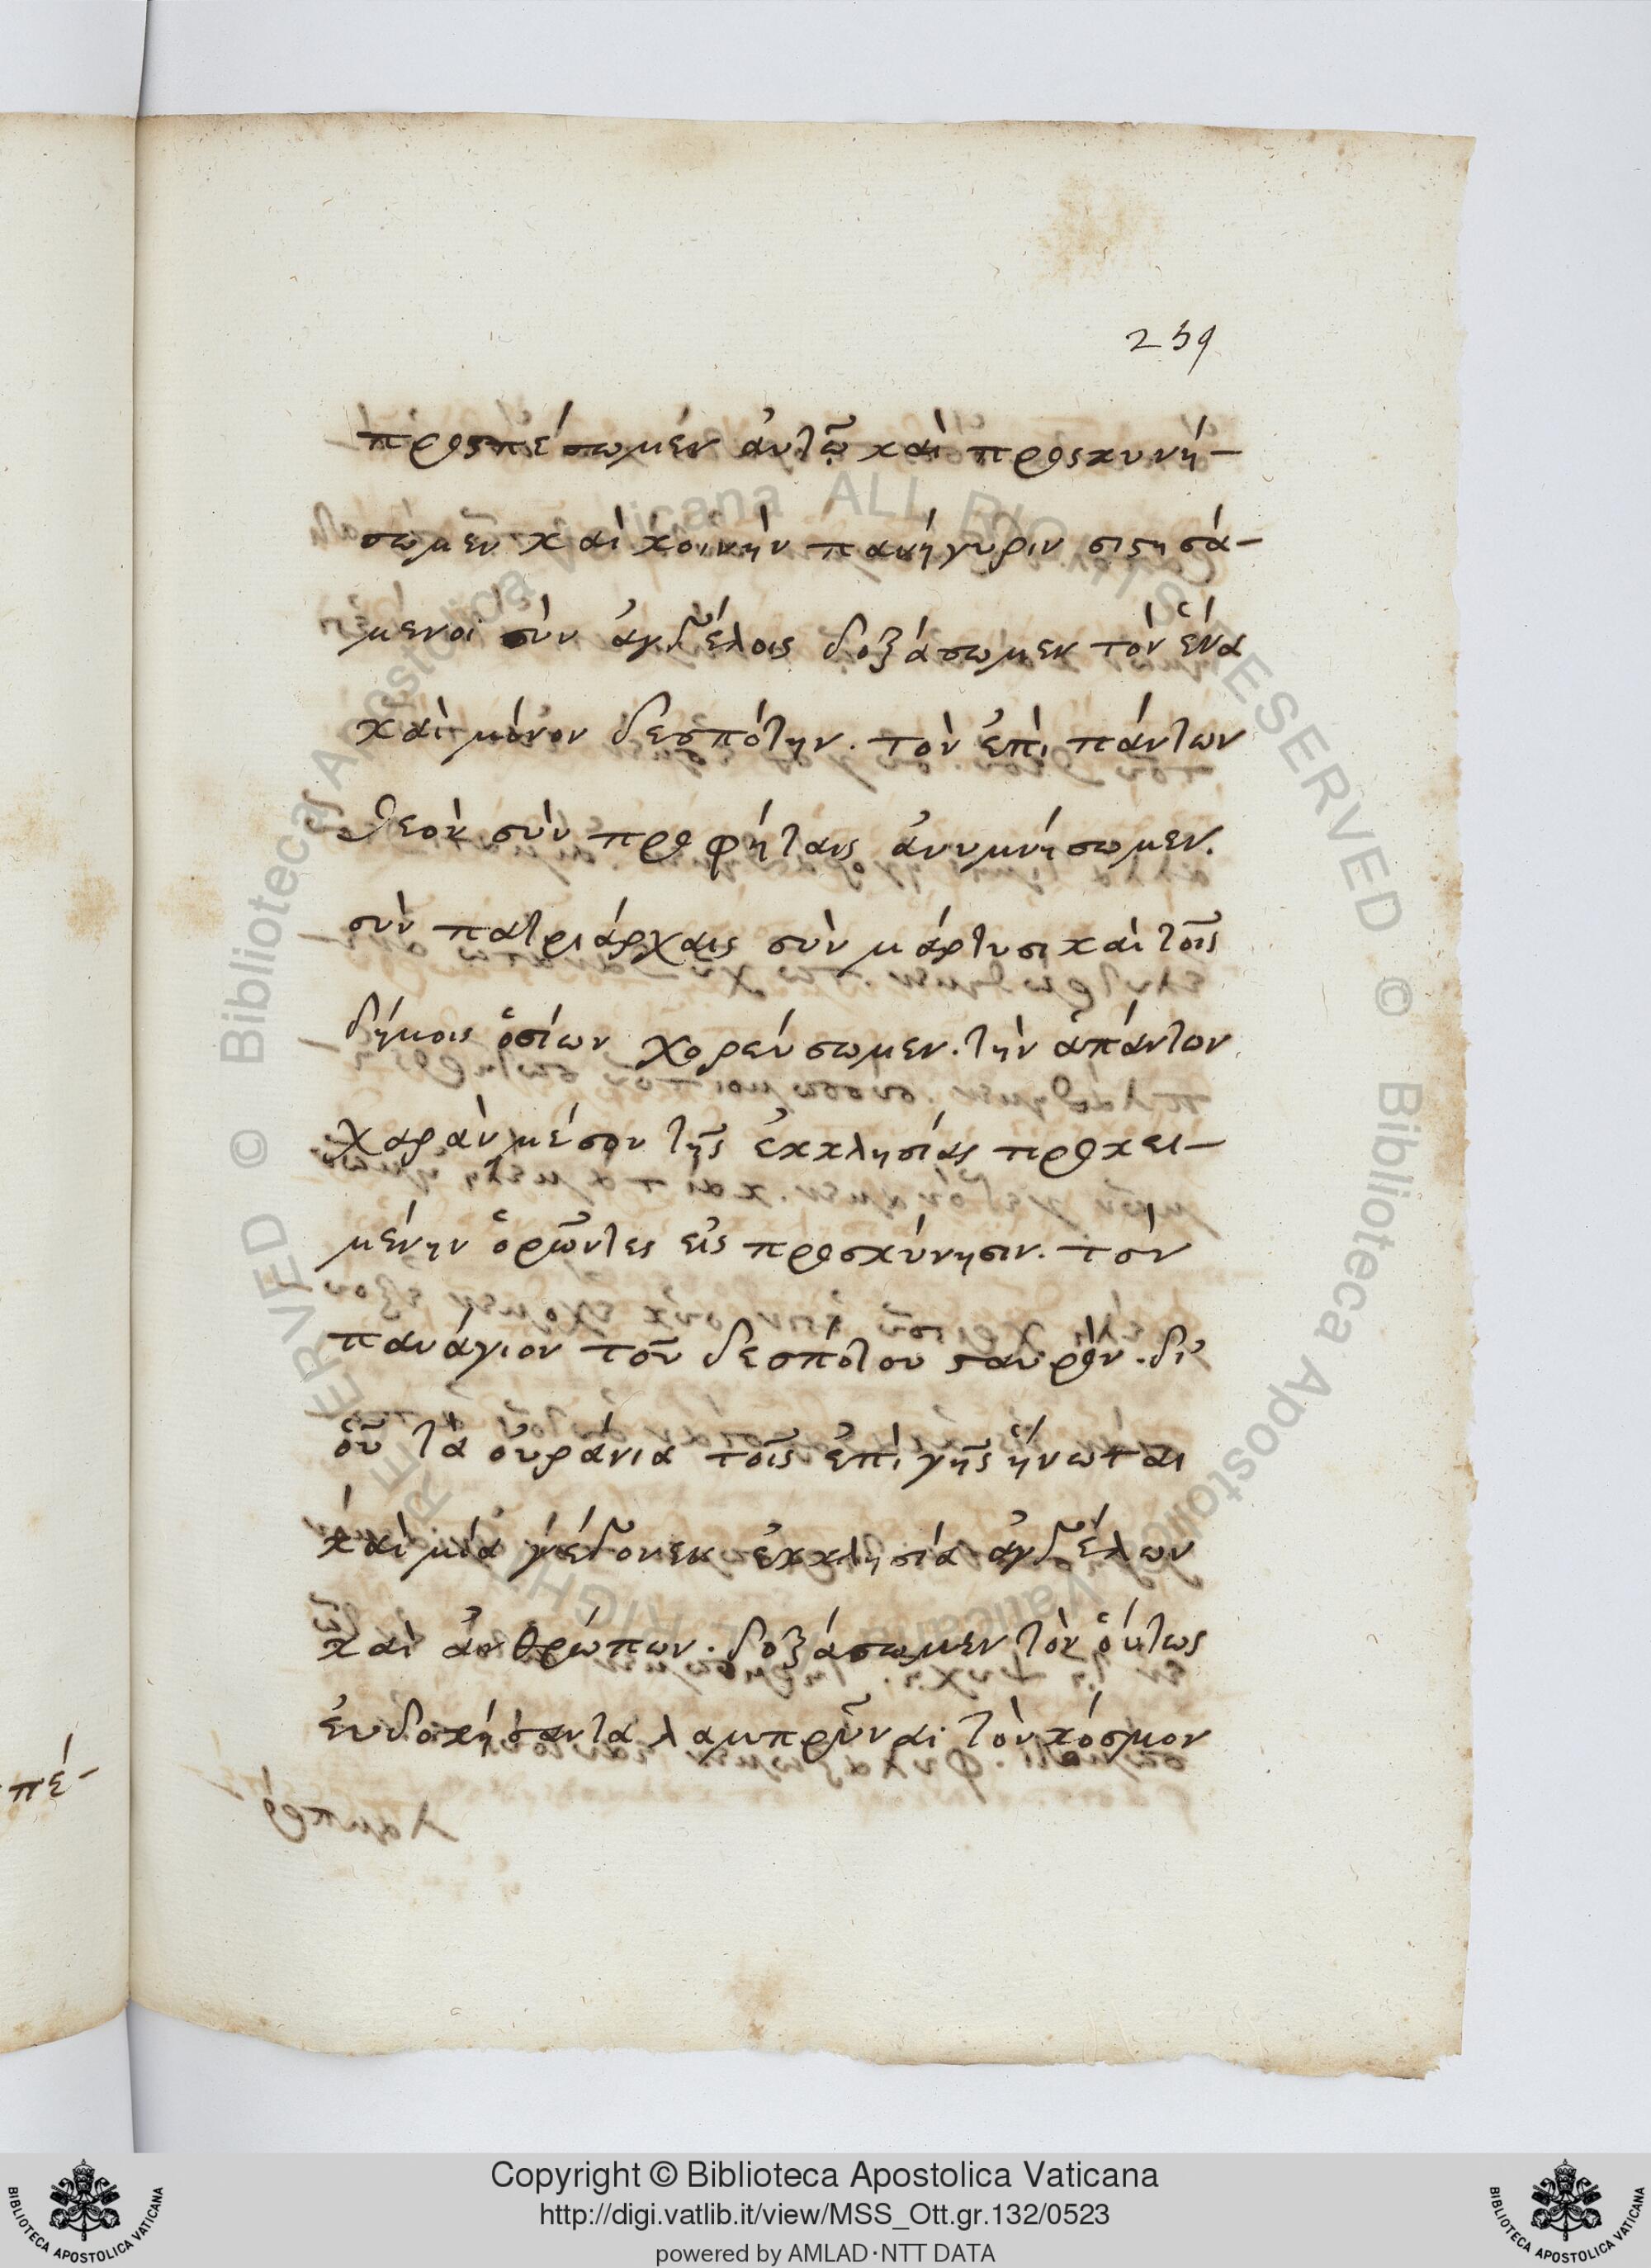 259
προσπέσωμεν αὐτῷ καὶ προσκυνή-
σωμεν καὶ κοινὴν πανήγυριν στησά-
μενοι σὺν ἀγγέλοις δοξάσωμεν τὸν ἕνα
καὶ μόνον δεσπότην. τὸν ἐπὶ πάντων
θεὸν σὺν προφήταις ἀνυμνήσωμεν.
σὺν πατριάρχαις σὺν μάρτυσι καὶ τοῖς
δήμοις ὁσίων χορεύσωμεν. τὴν ἁπάντων
χαρὰν μέσον τῆς ἐκκλησίας προκει-
μένην ὁρῶντες εἰς προσκύνησιν. τὸν
πανάγιον τοῦ δεσπότου σταυρὸν. δι'
οὗ τὰ οὐράνια τοῖς ἐπὶ γῆς ἥνωται
καὶ μία γέγονεν ἐκκλησία ἀγγέλων
καὶ ἀνθρώπων. δοξάσωμεν τὸν οὕτως
εὐδοκήσαντα λαμπρῦναι τὸν κόσμον
πέ-
Copyright © Biblioteca Apostolica Vaticana
http://digi.vatlib.it/view/MSS_Ott.gr.132/0523
powered by AMLAD·NTT DATA
BIBLIOTECA APOSTOLICA VATICANA
BIBLIOTECA APOSTOLICA VATICANA